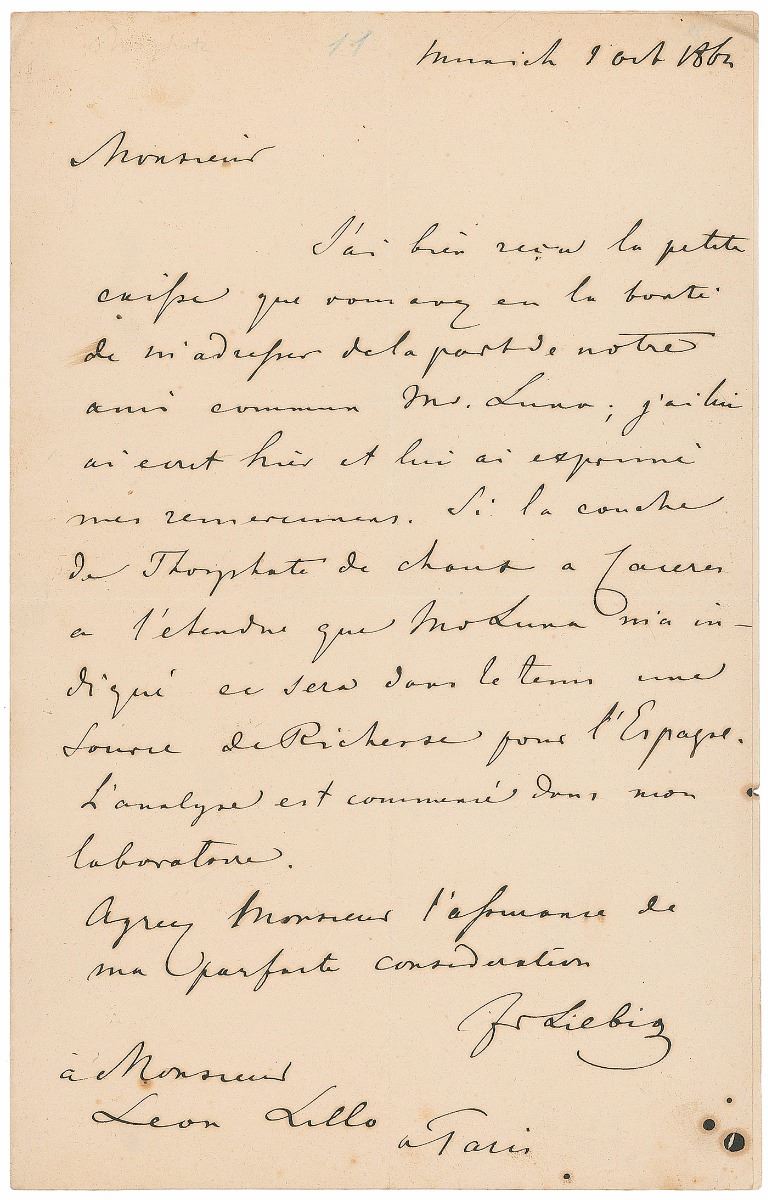 Munich 9 oct 1864
Monsieur
J'ai bien reçu la petite
caisse que vous avez eu la bonté
de m'adresser de la part de notre
ami commun Mr. Luna; j'ai lui
ai ecrit hier et lui ai exprimé
mes remercimens. Si la couche
de Phosphate de chaux a Caceres
a l'étendue que Mr Luna m'a in-
diqué ce sera dans le tems une
Source de Richesse pour l'Espagne.
L'analyse est commencé dans mon
laboratoire.
Agreez Monsieur l'assurance de
ma parfaite consideration
Liebig
à Monsieur
Leon Lillo
a Paris